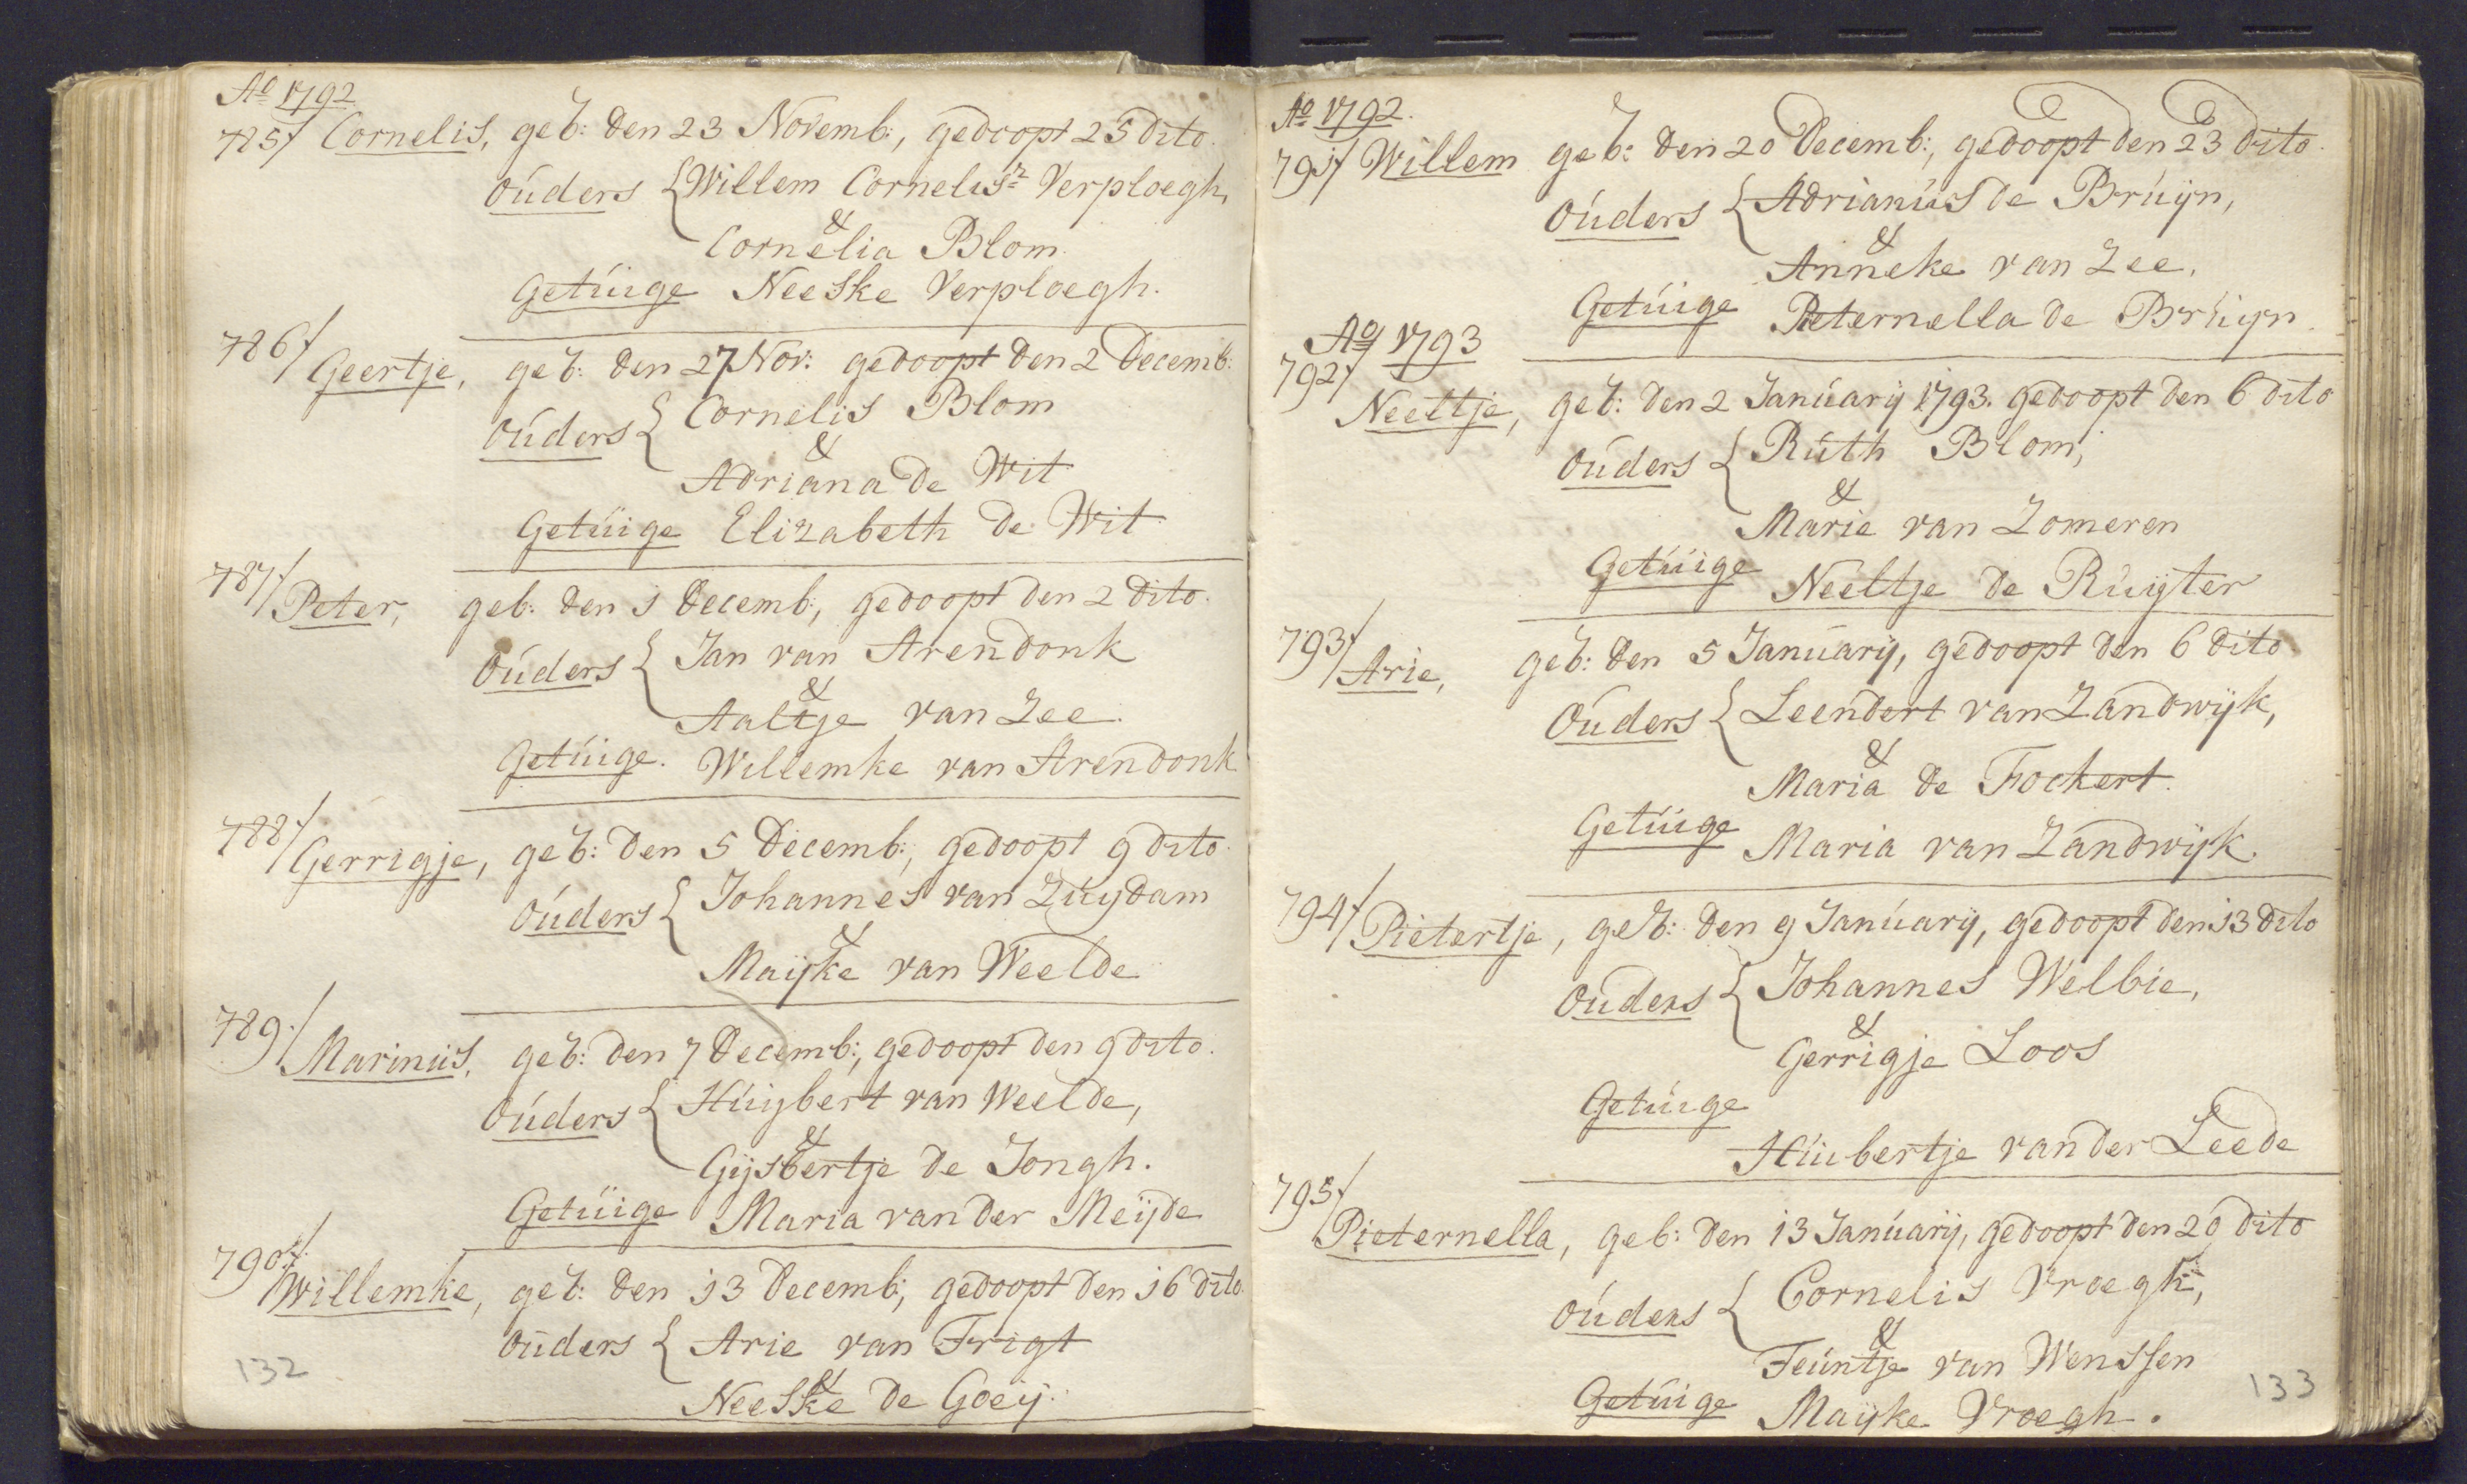 Ao 1792
785/ Cornelis, geb: den 23 Novemb:, gedoopt 25 dito.
Ouders { Willem Cornelisz Verploegh,
&
Cornelia Blom.
Getúige Neeske Verploegh.
786/ Geertje, geb: den 27 Nov: gedoopt den 2 Decemb:
Oúders { Cornelis Blom
&
Adriana de Wit
Getúige Elizabeth de Wit
787/ Peter, geb: den 1 Decemb:, gedoopt den 2 dito.
Oúders { Jan van Arendonk
&
Aaltje van Zee.
Getúige. Willemke van Arendonk
788/ Gerrigje, geb: den 5 Decemb:, gedoopt 9 dito.
Oúders { Johannes van Zúydam
&
Maijke van Weelde
789/ Marinús, geb: den 7 Decemb:, gedoopt den 9 dito.
Oúders { Húijbert van Weelde,
&
Gijsbertje de Jongh.
Getúige Maria van der Meijde
790/ Willemke, geb: den 13 Decemb:, gedoopt den 16 dito.
Oúders { Arie van Frigt
&
Neeske de Goeij.
132
Ao 1792.
791/ Willem geb: den 20 Decemb:, gedoopt den 23 dito.
Oúders { Adrianús de Brúijn,
&
Anneke van Zee.
Getúige Peternella de Brúijn.
Ao 1793
792/ Neeltje, geb: den 2 Janúarij 1793. gedoopt den 6 dito
Oúders { Rúth Blom,
&
Marie van Zomeren
Getúige Neeltje de Rúijter
793/ Arie, geb: den 5 Janúarij, gedoopt den 6 dito
Oúders { Leendert van Zandwijk,
&
Maria de Fockert.
Getúige Maria van Zandwijk.
794/ Pietertje, geb: den 9 Janúarij, gedoopt den 13 dito
Oúders { Johannes Welbie,
&
Gerrigje Loos
Getúige
Húibertje van der Leede
795/ Pieternella, geb: den 13 Janúarij, gedoopt den 20 dito
Oúders { Cornelis Vroegh,
&
Teúntje van Wenssen
Getúige Maijke Vroegh.
133